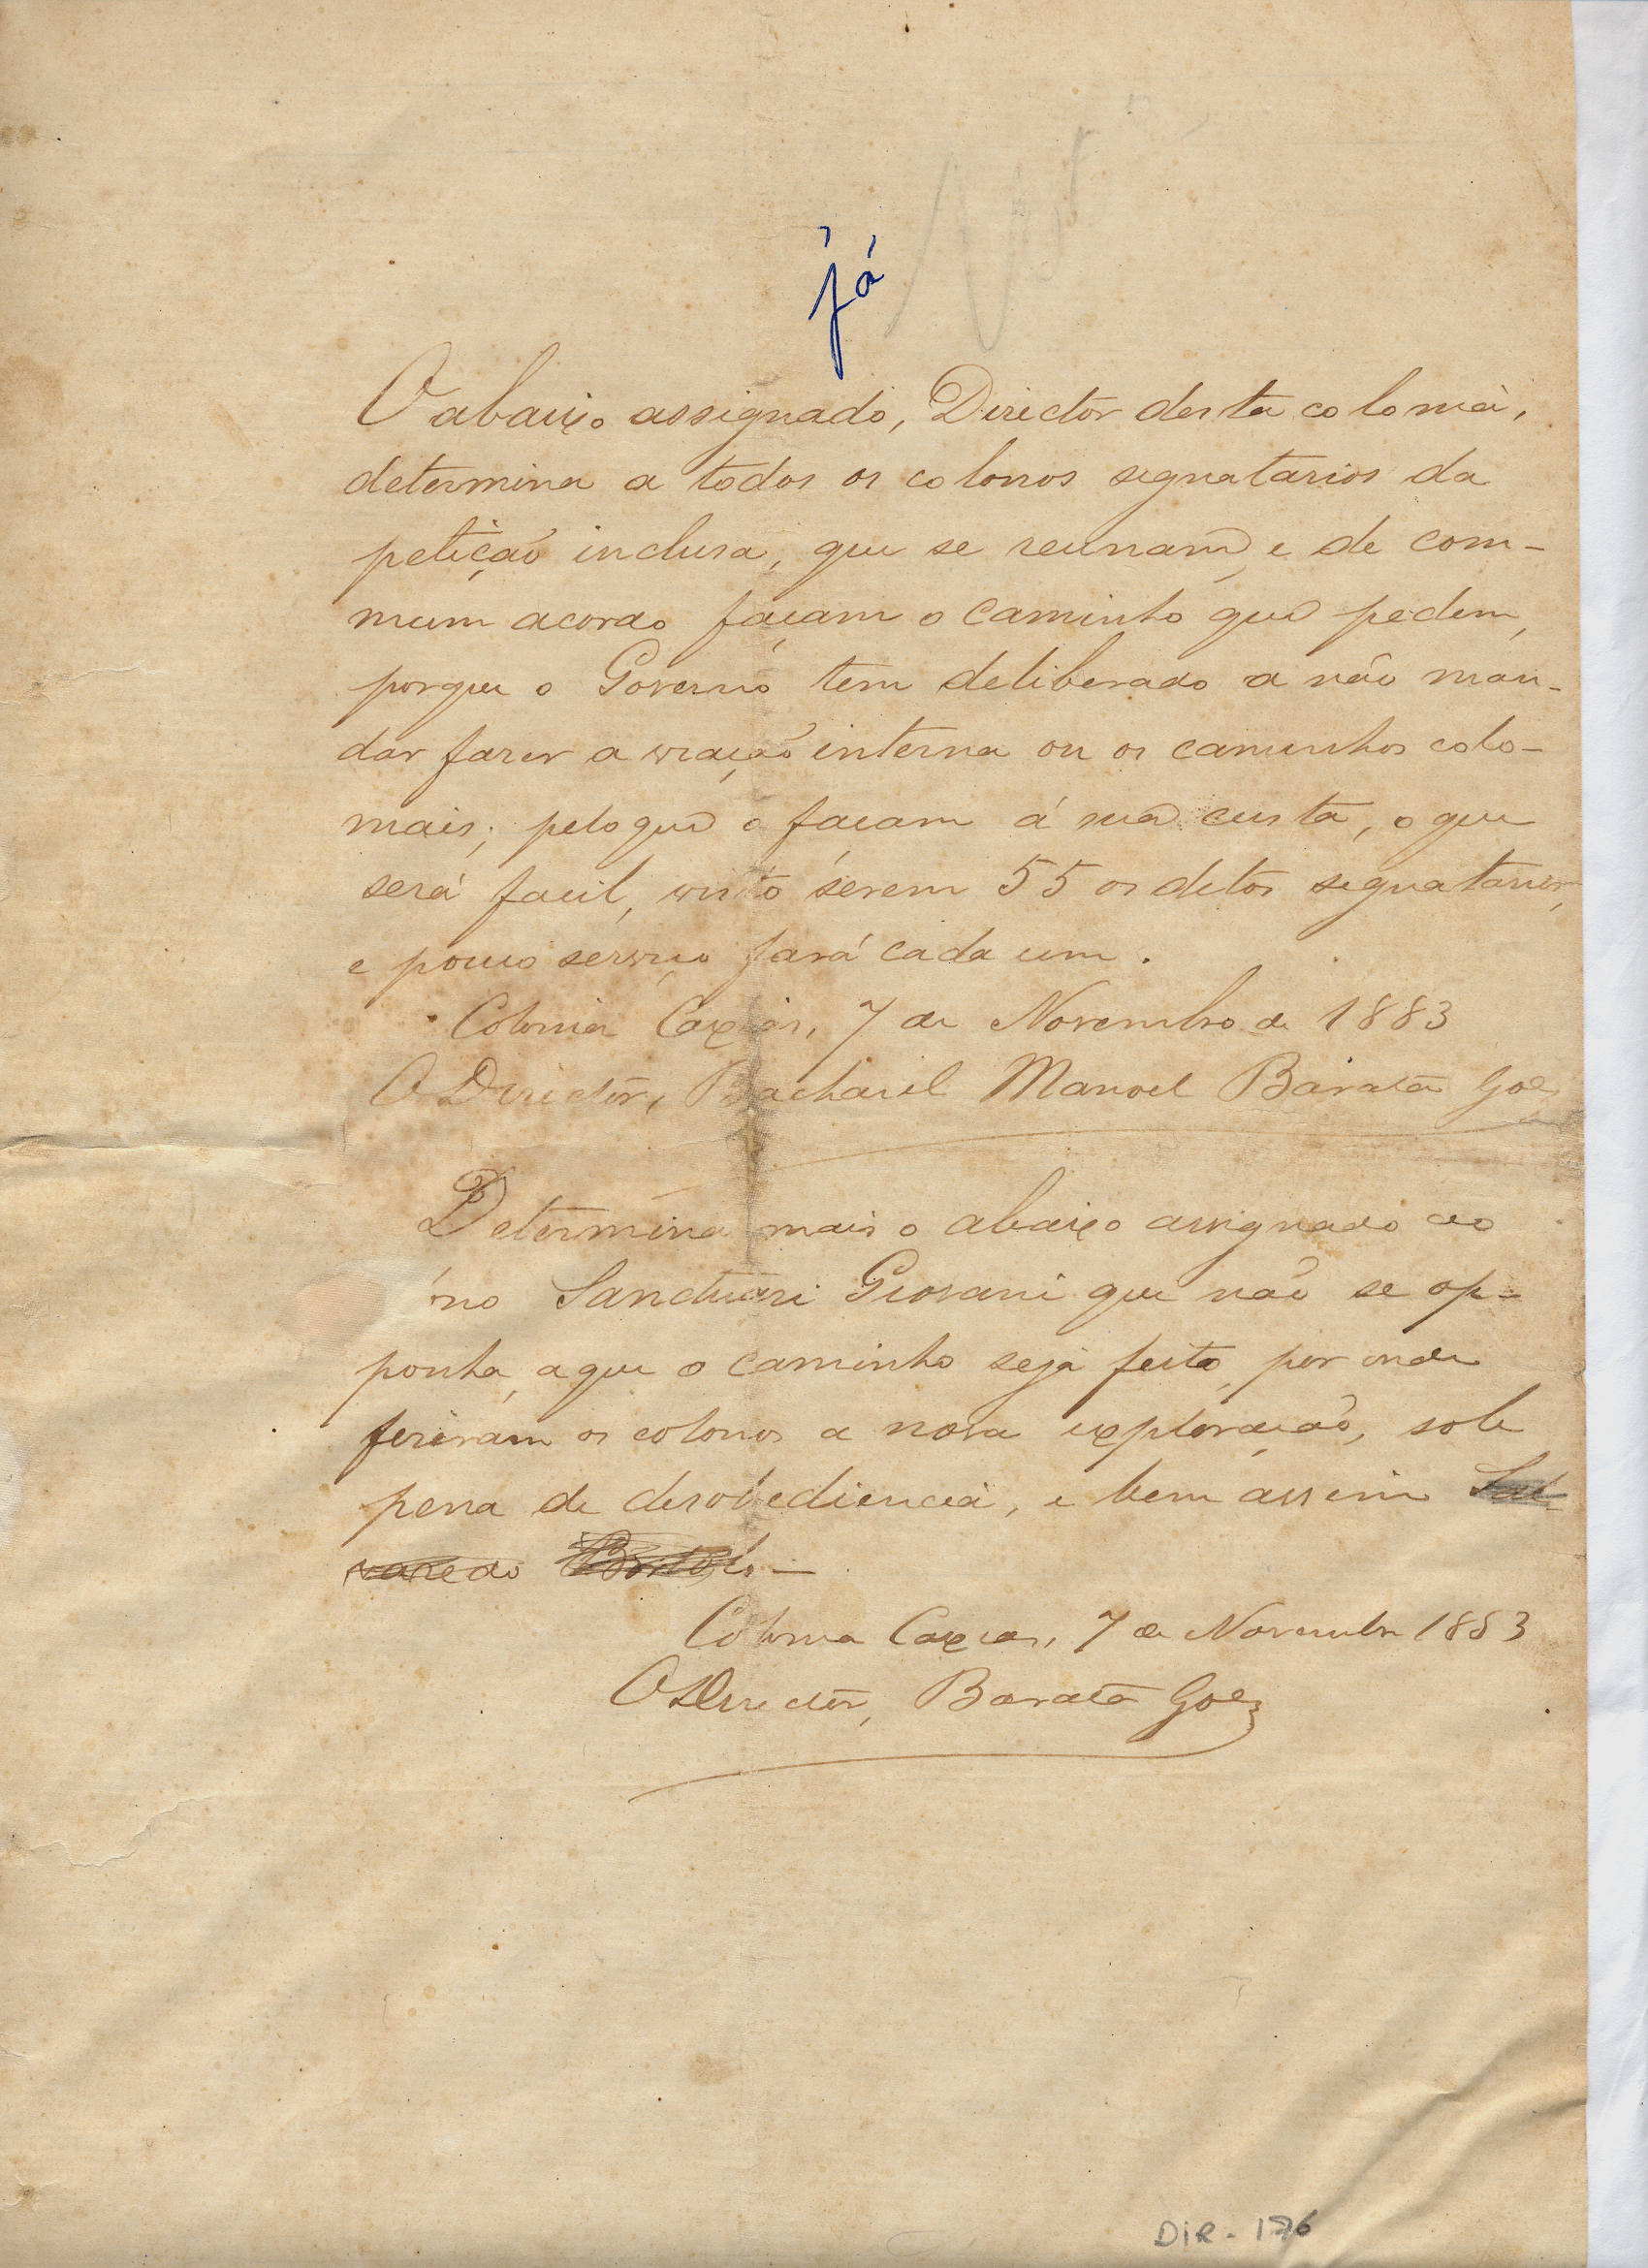 já
O abaixo assignado, Director desta colonia,
determina a todos os colonos signatarios da
petição inclusa, que se reunam e de com-
mum acordo façam o caminho que pedem,
porque o Governo tem deliberado a não man-
dar fazer a viação interna ou os caminhos colo-
niais; pelo que o façam á sua custa, o que
será facil, visto serem 55 os ditos signatarios,
e pouco serviço fará cada um.
Colonia Caxias, 7 de Novembro de 1883
O Director, Bacharel Manoel Barata Goes
Determina mais o abaixo assignado ao
no Sanctuari Giovani que não se op-
ponha, a que o caminho seja feito, por onde
fizeram os colonos a nova exploração, sob
pena de desobediencia, e bem assim
Colonia Caxias, 7 de Novembro 1883
O Director, Barata Goes
DIR - 176